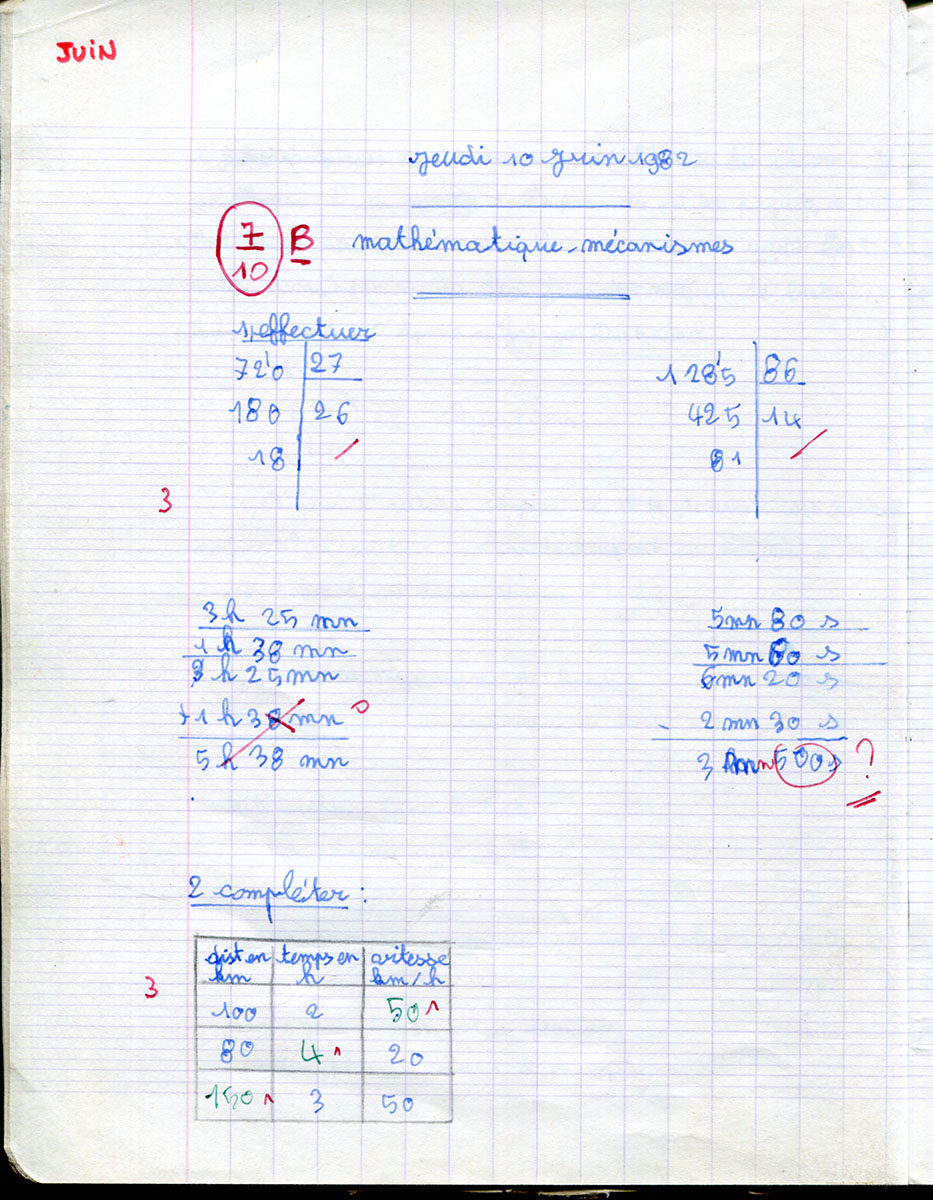 JUIN
jeudi 10 juin 1982
7/10 B mathématique-mécanismes
1) effectuer
720 27
180 26
18
1285 86
425 14
81
3
3 h 25 mn
1 h 38 mn
3 h 25 mn
+1 h 38 mn 0
5 h 38 mn
5 mn 80 s
5 mn 60 s
6 mn 20 s
- 2 mn 30 s
3 mn 500 s ?
2 compléter :
3
dist en km temps en h vitesse km/h
100 2 50
80 4 20
150 3 50